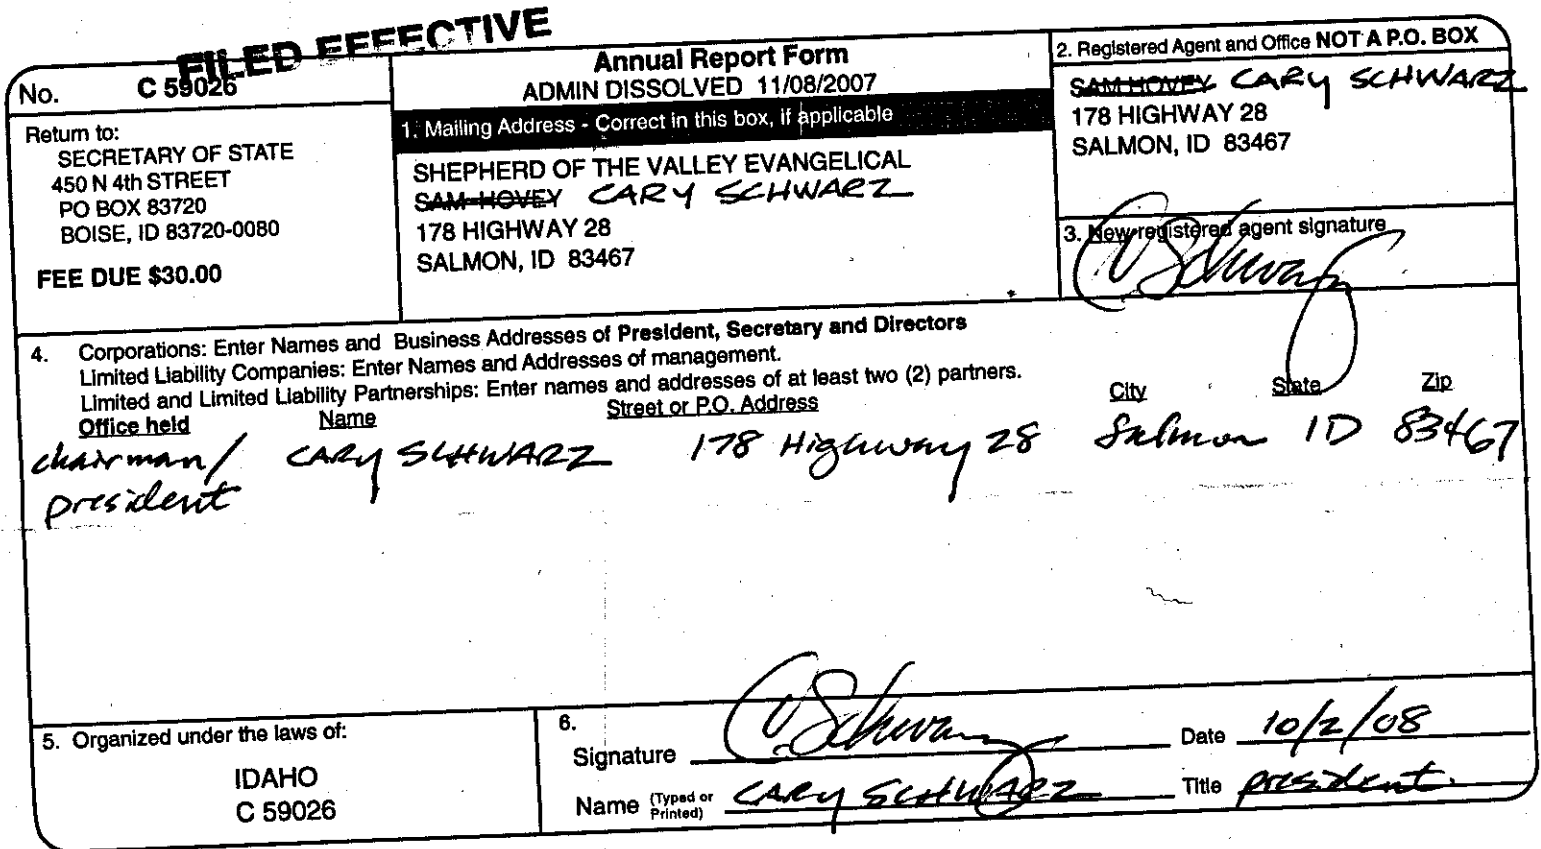 FILED EFFECTIVE
No. C 59026
Return to:
SECRETARY OF STATE
450 N 4th STREET
PO BOX 83720
BOISE, ID 83720-0080
FEE DUE $30.00
Annual Report Form
ADMIN DISSOLVED 11/08/2007
1. Mailing Address - Correct in this box, if applicable
SHEPHERD OF THE VALLEY EVANGELICAL
SAM HOVEY CARY SCHWARZ
178 HIGHWAY 28
SALMON, ID 83467
2. Registered Agent and Office NOT A P.O. BOX
SAM HOVEY CARY SCHWARZ
178 HIGHWAY 28
SALMON, ID 83467
3. New registered agent signature
C Schwarz
4. Corporations: Enter Names and Business Addresses of President, Secretary and Directors
Limited Liability Companies: Enter Names and Addresses of management.
Limited and Limited Liability Partnerships: Enter names and addresses of at least two (2) partners.
Office held Name Street or P.O. Address City State Zip
chairman/ CARY SCHWARZ 178 Highway 28 Salmon ID 83467
president
5. Organized under the laws of:
IDAHO
C 59026
6.
Signature C Schwarz Date 10/2/08
Name (Typed or Printed) CARY SCHWARZ Title president